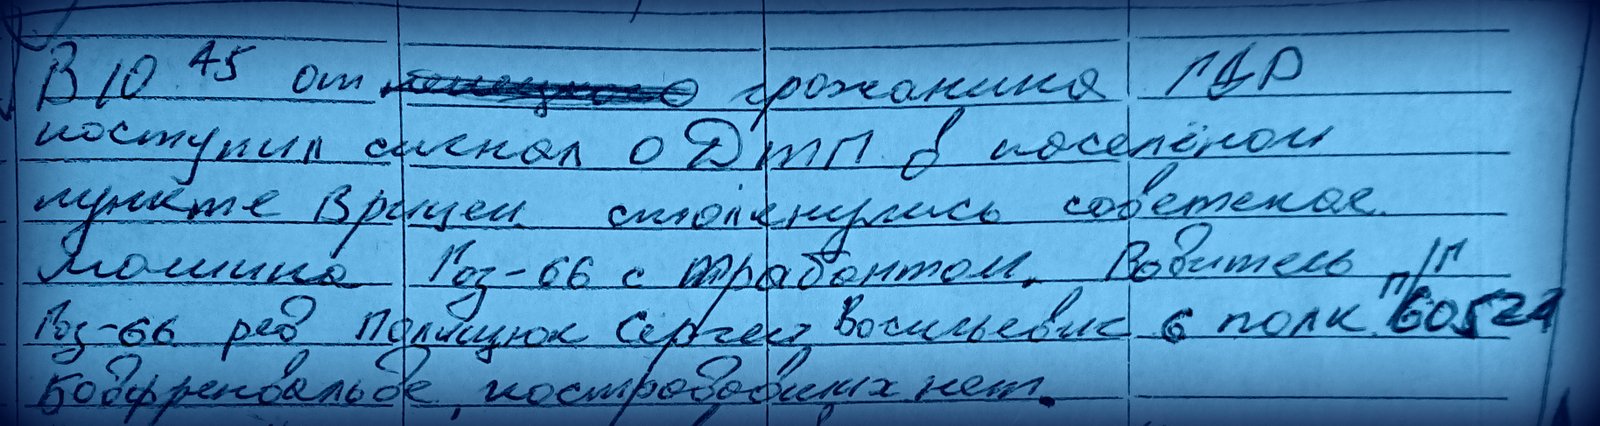 В 10 45 от немецкого гражанина ГДР
поступил сигнал о ДТП в населёном
пункте Врицен столкнулись советская
машина Газ-66 с трабантом. Водитель
Газ-66 ряд Полищук Сергей Васильевич 6 полк п/п
Бадфреенвальде, пострадавших нет.